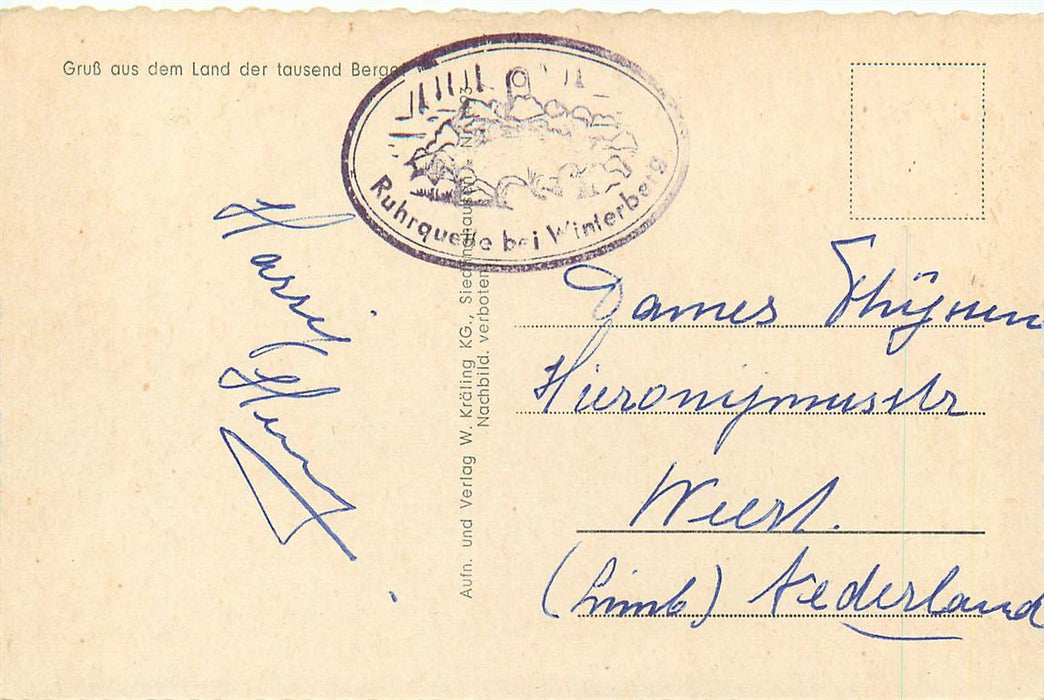 Gruß aus dem Land der tausend Berge
Ruhrquelle bei Winterberg
Aufn. und Verlag W. Kräling KG., Siedlinghausen
Nachbild. verboten
Dames Thijssen
Hieronymusstr
Weert.
(Limb) Nederland